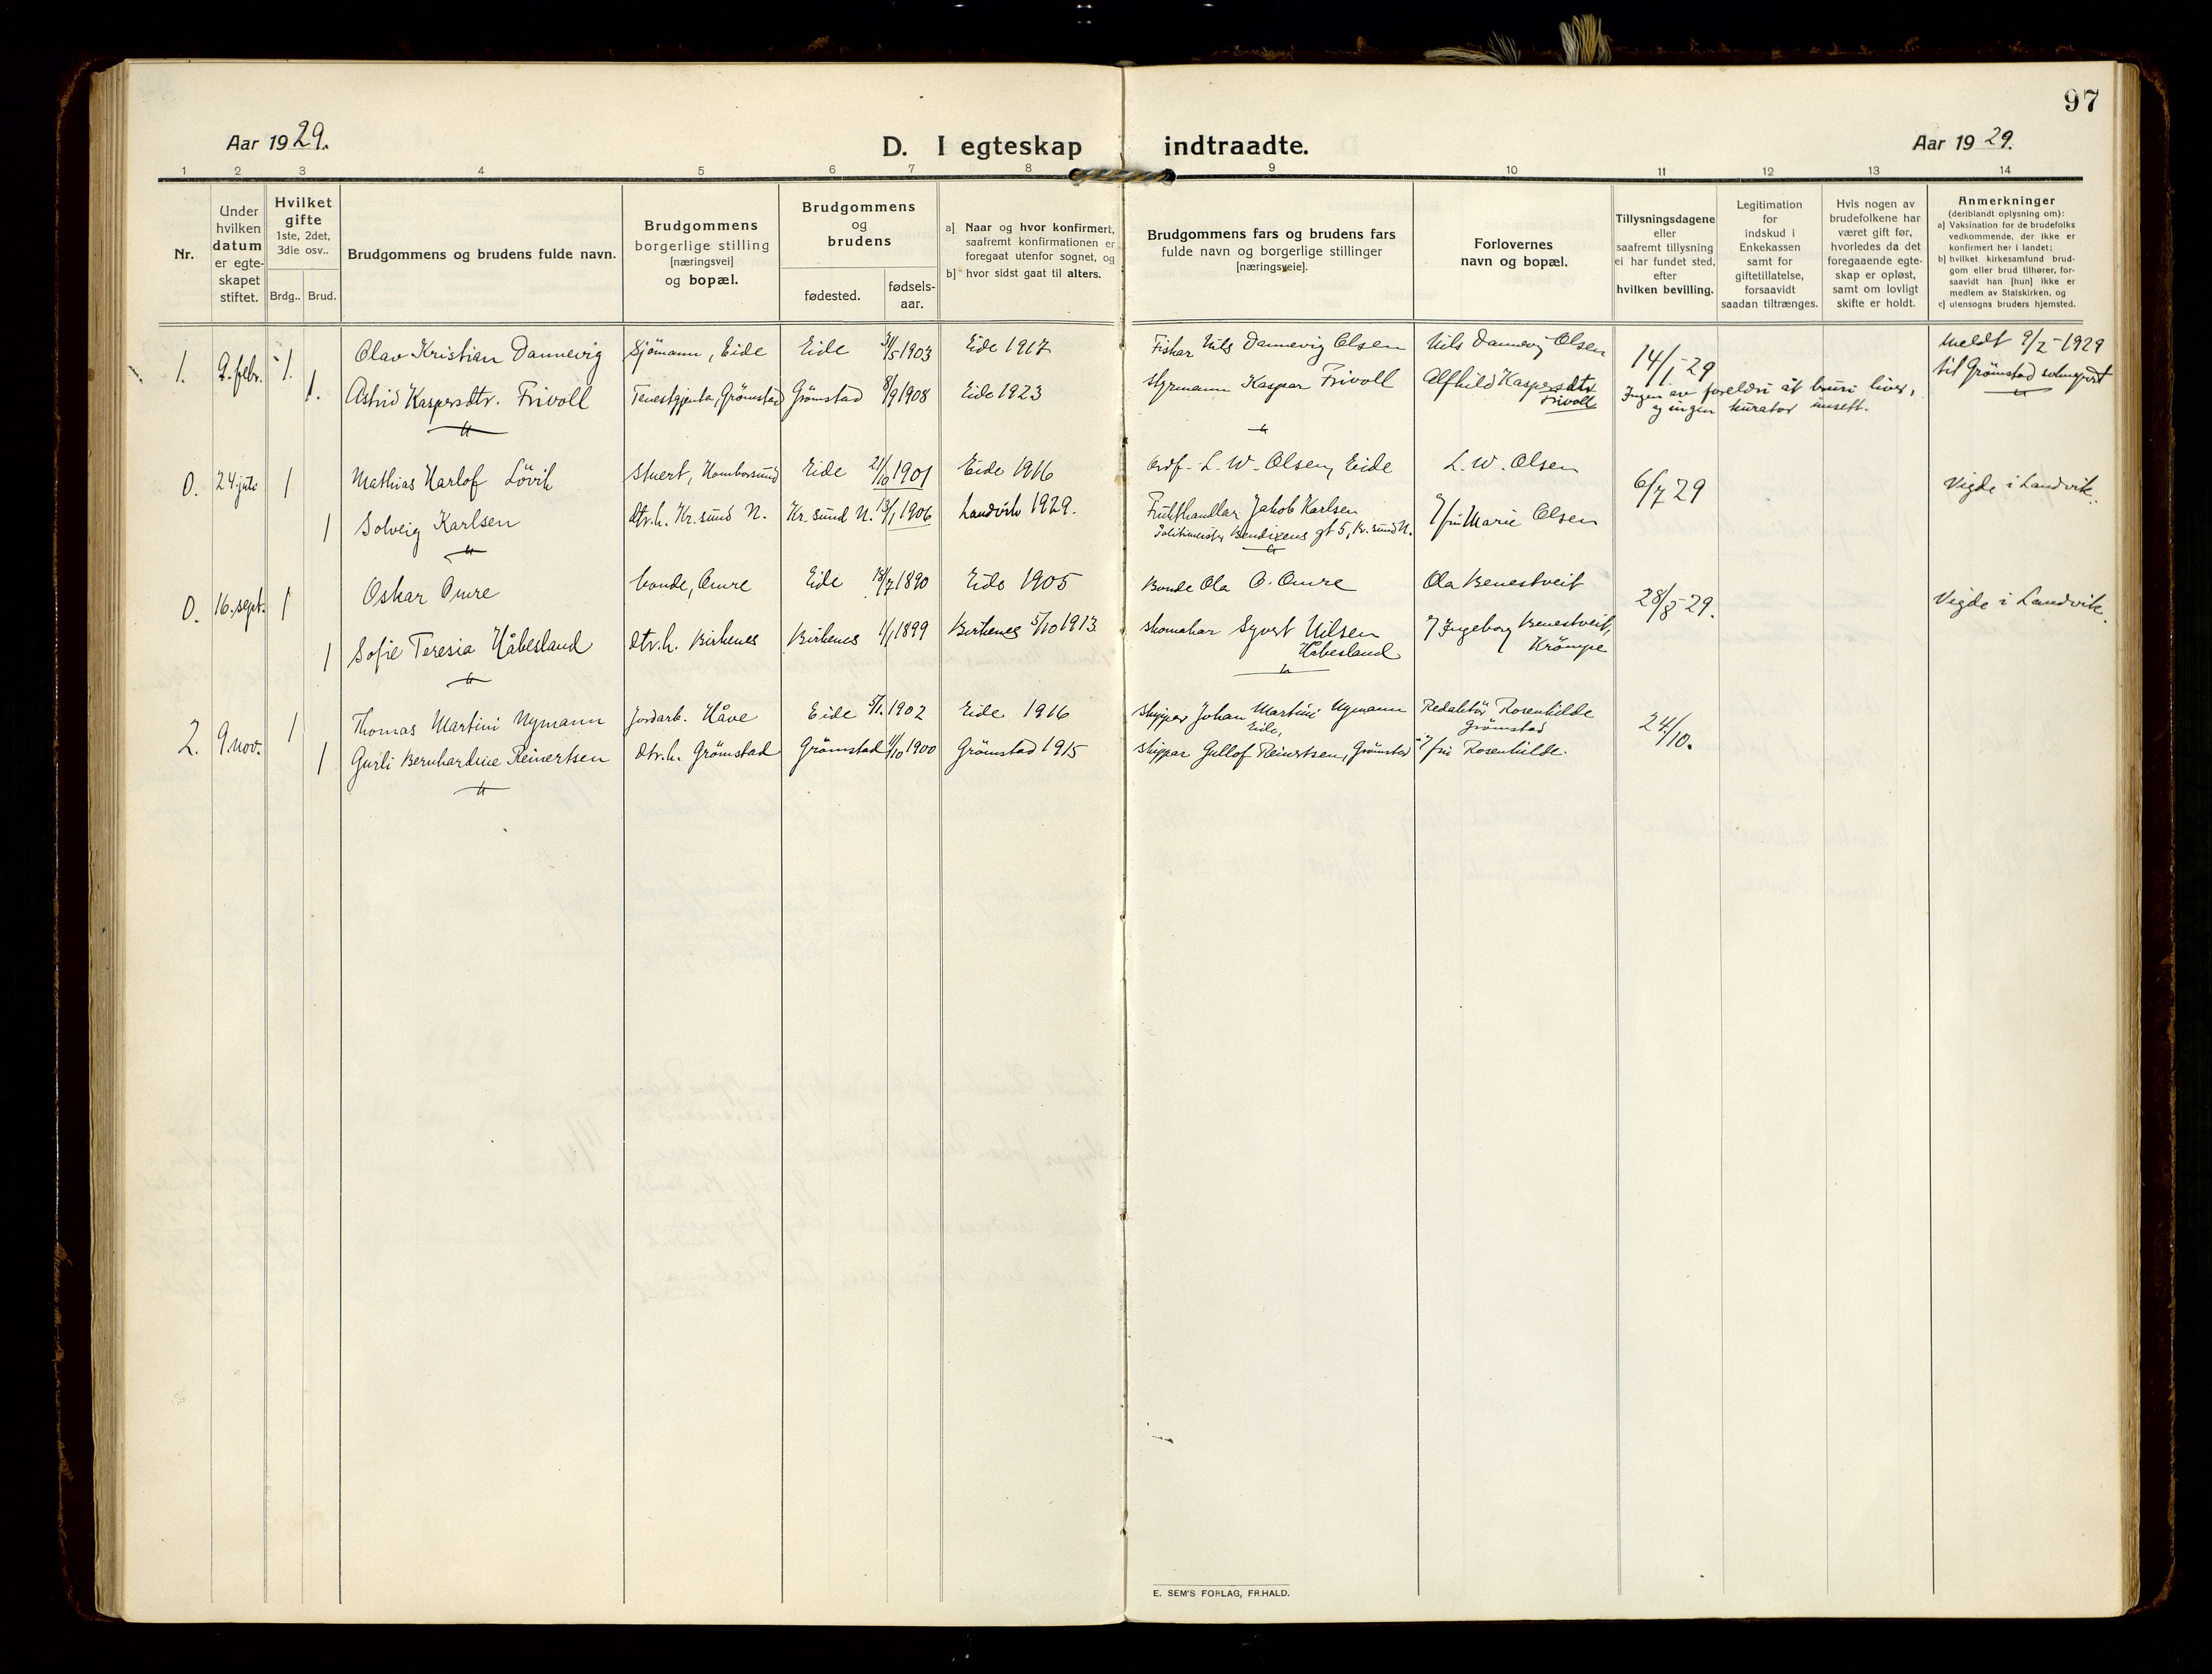 97
Aar 1929.
D. I egteskap indtraadte.
Aar 1929.
1 2 3 4 5 6 7 8 9 10 11 12 13 14
Nr.
Under
hvilken
datum
er egte-
skapet
stiftet.
Hvilket
gifte
1ste, 2det,
3die osv..
Brdg.. Brud.
Brudgommens og brudens fulde navn.
Brudgommens
borgerlige stilling
[næringsvei]
og bopæl.
Brudgommens
og
brudens
fødested.
fødsels-
aar.
a] Naar og hvor konfirmert,
saafremt konfirmationen er
foregaat utenfor sognet, og
b] hvor sidst gaat til alters.
Brudgommens fars og brudens fars
fulde navn og borgerlige stillinger
[næringsveie].
Forlovernes
navn og bopæl.
Tillysningsdagene
eller
saafremt tillysning
ei har fundet sted,
efter
hvilken bevilling.
Legitimation
for
indskud i
Enkekassen
samt for
giftetillatelse,
forsaavidt
saadan tiltrænges.
Hvis nogen av
brudefolkene har
været gift før,
hvorledes da det
foregaaende egte-
skap er opløst,
samt om lovligt
skifte er holdt.
Anmerkninger
(deriblandt oplysning om):
a) Vaksination for de brudefolks
vedkommende, der ikke er
konfirmert her i landet;
b) hvilket kirkesamfund brud-
gom eller brud tilhører, for-
saavidt han [hun] ikke er
medlem av Statskirken, og
c) utensogns bruders hjemsted.
1. 9. febr. 1. Olav Kristian Dannevig Sjömann, Eide Eide /5 1903 Eide 1917 Fiskar Nils Dannevig Olsen Nils Dannevig Olsen 14/1-29 Meldt 9/2-1929
1. Astrid Kaspersdtr. Frivoll Tenestgjenta, Grömstad Grömstad 8/9 1908 Eide 1923 Styrmann Kaspar Frivoll Alfhild Kaspersdtr. til Grömstad
Frivoll Ingen av foreldri åt bruri liver,
og ingen kurator innsett.
0. 24. juli 1 Mathias Harlof Lövik Stuert, Homborsund Eide 21/10 1901 Eide 1916 Ordf. L. W. Olsen, Eide L. W. Olsen 6/7 29 Vigde i Landvik.
1 Solveig Karlsen dtr. h. Kr.sund N. Kr.sund N. 13/1 1906 Landvik 1929. Frukthandlar Jakob Karlsen Marie Olsen
Politimester Bendixens gt 5, Kr.sund N.
0. 16. sept. 1 Oskar Omre bonde, Omre Eide /7 1890 Eide 1905 Bonde Ola O. Omre Ola Benestveit 28/8-29. Vigde i Landvik.
1 Sofie Teresia Håbesland dtr. h. Birkenes Birkenes 1/1 1899 Birkenes 5/10 1913 Skomakar Syvert Nilsen Ingeborg Benestveit,
Håbesland Krömpe
2. 9. nov. 1 Thomas Martini Nymann Jordarb. Håve Eide 5/1. 1902 Eide 1916 Skippar Johan Martini Nymann Redaktör Rosenkilde 24/10.
Eide, Grömstad
1 Gurli Bernhardine Reinertsen dtr. h. Grömstad Grömstad 11/10 1900 Grömstad 1915 Skippar Gullof Reinertsen, Grömstad fru Rosenkilde.
E. SEM'S FORLAG, FR.HALD.